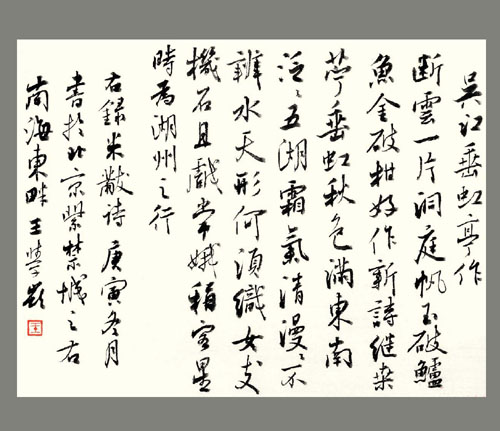 吴江垂虹亭作
断雲一片洞庭帆玉破鱸
魚金破柑好作新詩继桑
苧垂虹秋色滿東南
泛〻五湖霜氣清漫〻不
辨水天形何須織女支
機石且戲常娥稱客星
時為湖州之行
右録米黻诗庚寅冬月
書於北京紫禁城之右
南海東畔王學